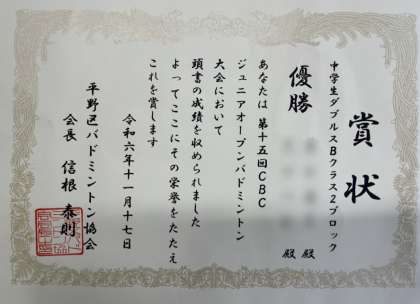 賞状
中学生ダブルスBクラス2ブロック
優勝
殿
殿
あなたは 第十五回CBC
ジュニアオープンバドミントン
大会において
頭書の成績を収められました
よってここにその栄誉をたたえ
これを賞します
令和六年十一月十七日
平野区バドミントン協会
会長 信根 泰則